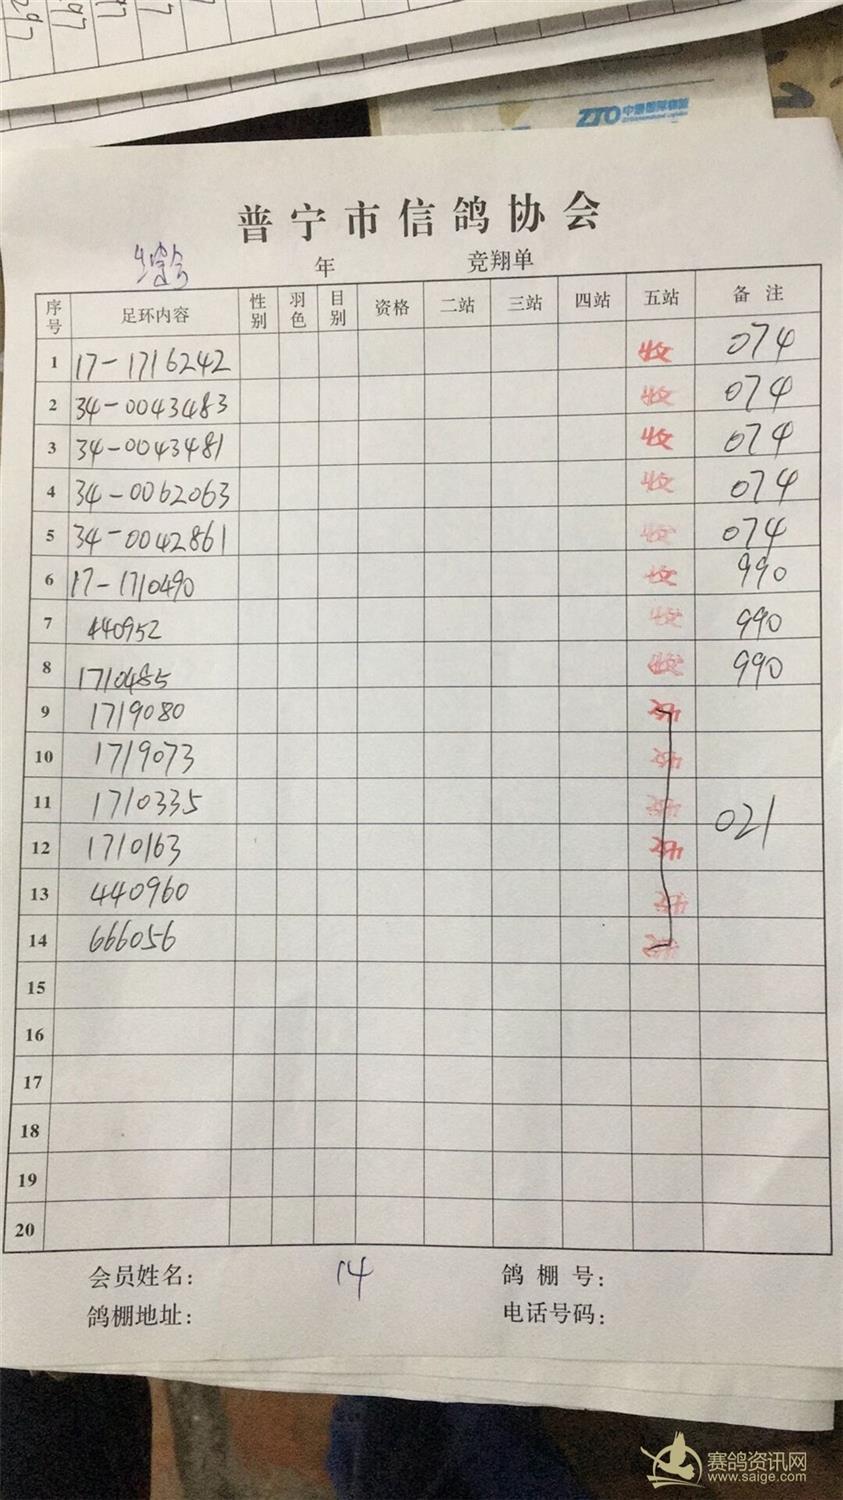 297
97
97
ZTO 中通国际物流
普宁市信鸽协会
年 竞翔单
序号 足环内容 性别 羽色 目别 资格 二站 三站 四站 五站 备注
1 17-1716242 收 074
2 34-0043483 收 074
3 34-0043481 收 074
4 34-0062063 收 074
5 34-0042861 收 074
6 17-1710490 收 990
7 440952 收 990
8 1710485 收 990
9 1719080 收
10 1719073 收
11 1710335 收 021
12 1710163 收
13 440960 收
14 666056 收
15
16
17
18
19
20
会员姓名: 14 鸽棚号:
鸽棚地址: 电话号码:
赛鸽资讯网
www.saige.com